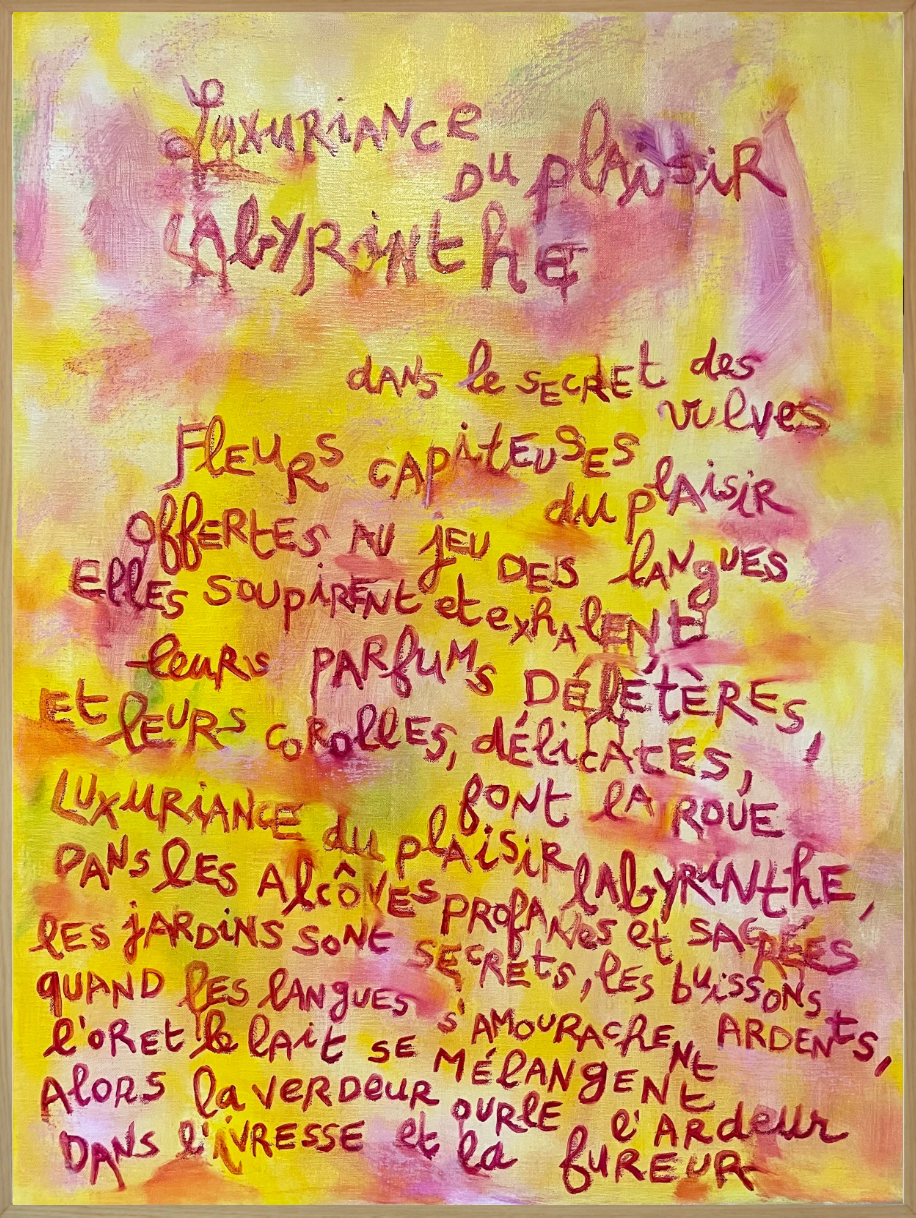 Luxuriance
du plaisir
labyrinthe
dans le secret des
vulves
Fleurs capiteuses
du plaisir
Offertes au jeu des langues
Elles soupirent et exhalent
leurs parfums délétères,
Et leurs corolles, délicates,
font la roue
Luxuriance du plaisir labyrinthe,
Dans les alcôves profanes et sacrées
les jardins sont secrets, les buissons ardents,
quand les langues s'amourachent
l'or et le lait se mélangent
Alors la verdeur ourle l'ardeur
Dans l'ivresse et la fureur